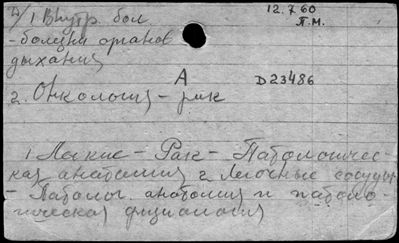 1 Внутр. бол.
12.7.60
П.М.
- болезни органов
дыхания
А
D23486
2. Онкология - рак
1 Легкие - Рак - Патологичес-
кая анатомия 2 Легочные сосуды
- Патолог. анатомия и патоло-
гическая физиология